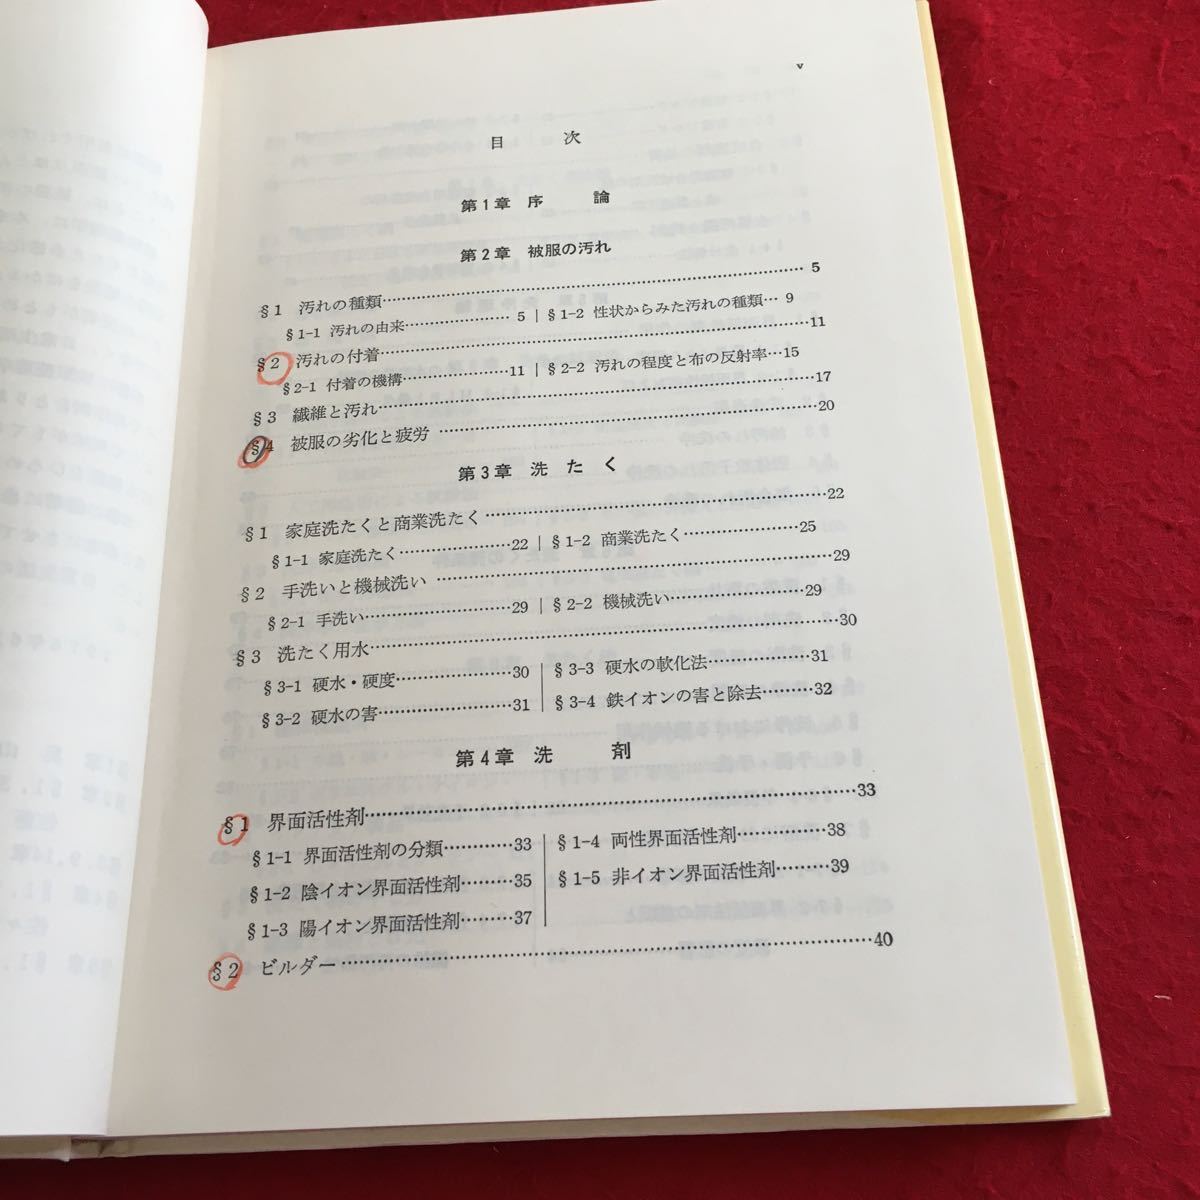 v
目次
第1章 序論
第2章 被服の汚れ
§1 汚れの種類…5
§1-1 汚れの由来…5 | §1-2 性状からみた汚れの種類…9
§2 汚れの付着…11
§2-1 付着の機構…11 | §2-2 汚れの程度と布の反射率…15
§3 繊維と汚れ…17
§4 被服の劣化と疲労…20
第3章 洗たく
§1 家庭洗たくと商業洗たく…22
§1-1 家庭洗たく…22 | §1-2 商業洗たく…25
§2 手洗いと機械洗い…29
§2-1 手洗い…29 | §2-2 機械洗い…29
§3 洗たく用水…30
§3-1 硬水・硬度…30
§3-2 硬水の害…31
§3-3 硬水の軟化法…31
§3-4 鉄イオンの害と除去…32
第4章 洗剤
§1 界面活性剤…33
§1-1 界面活性剤の分類…33
§1-2 陰イオン界面活性剤…35
§1-3 陽イオン界面活性剤…37
§1-4 両性界面活性剤…38
§1-5 非イオン界面活性剤…39
§2 ビルダー…40